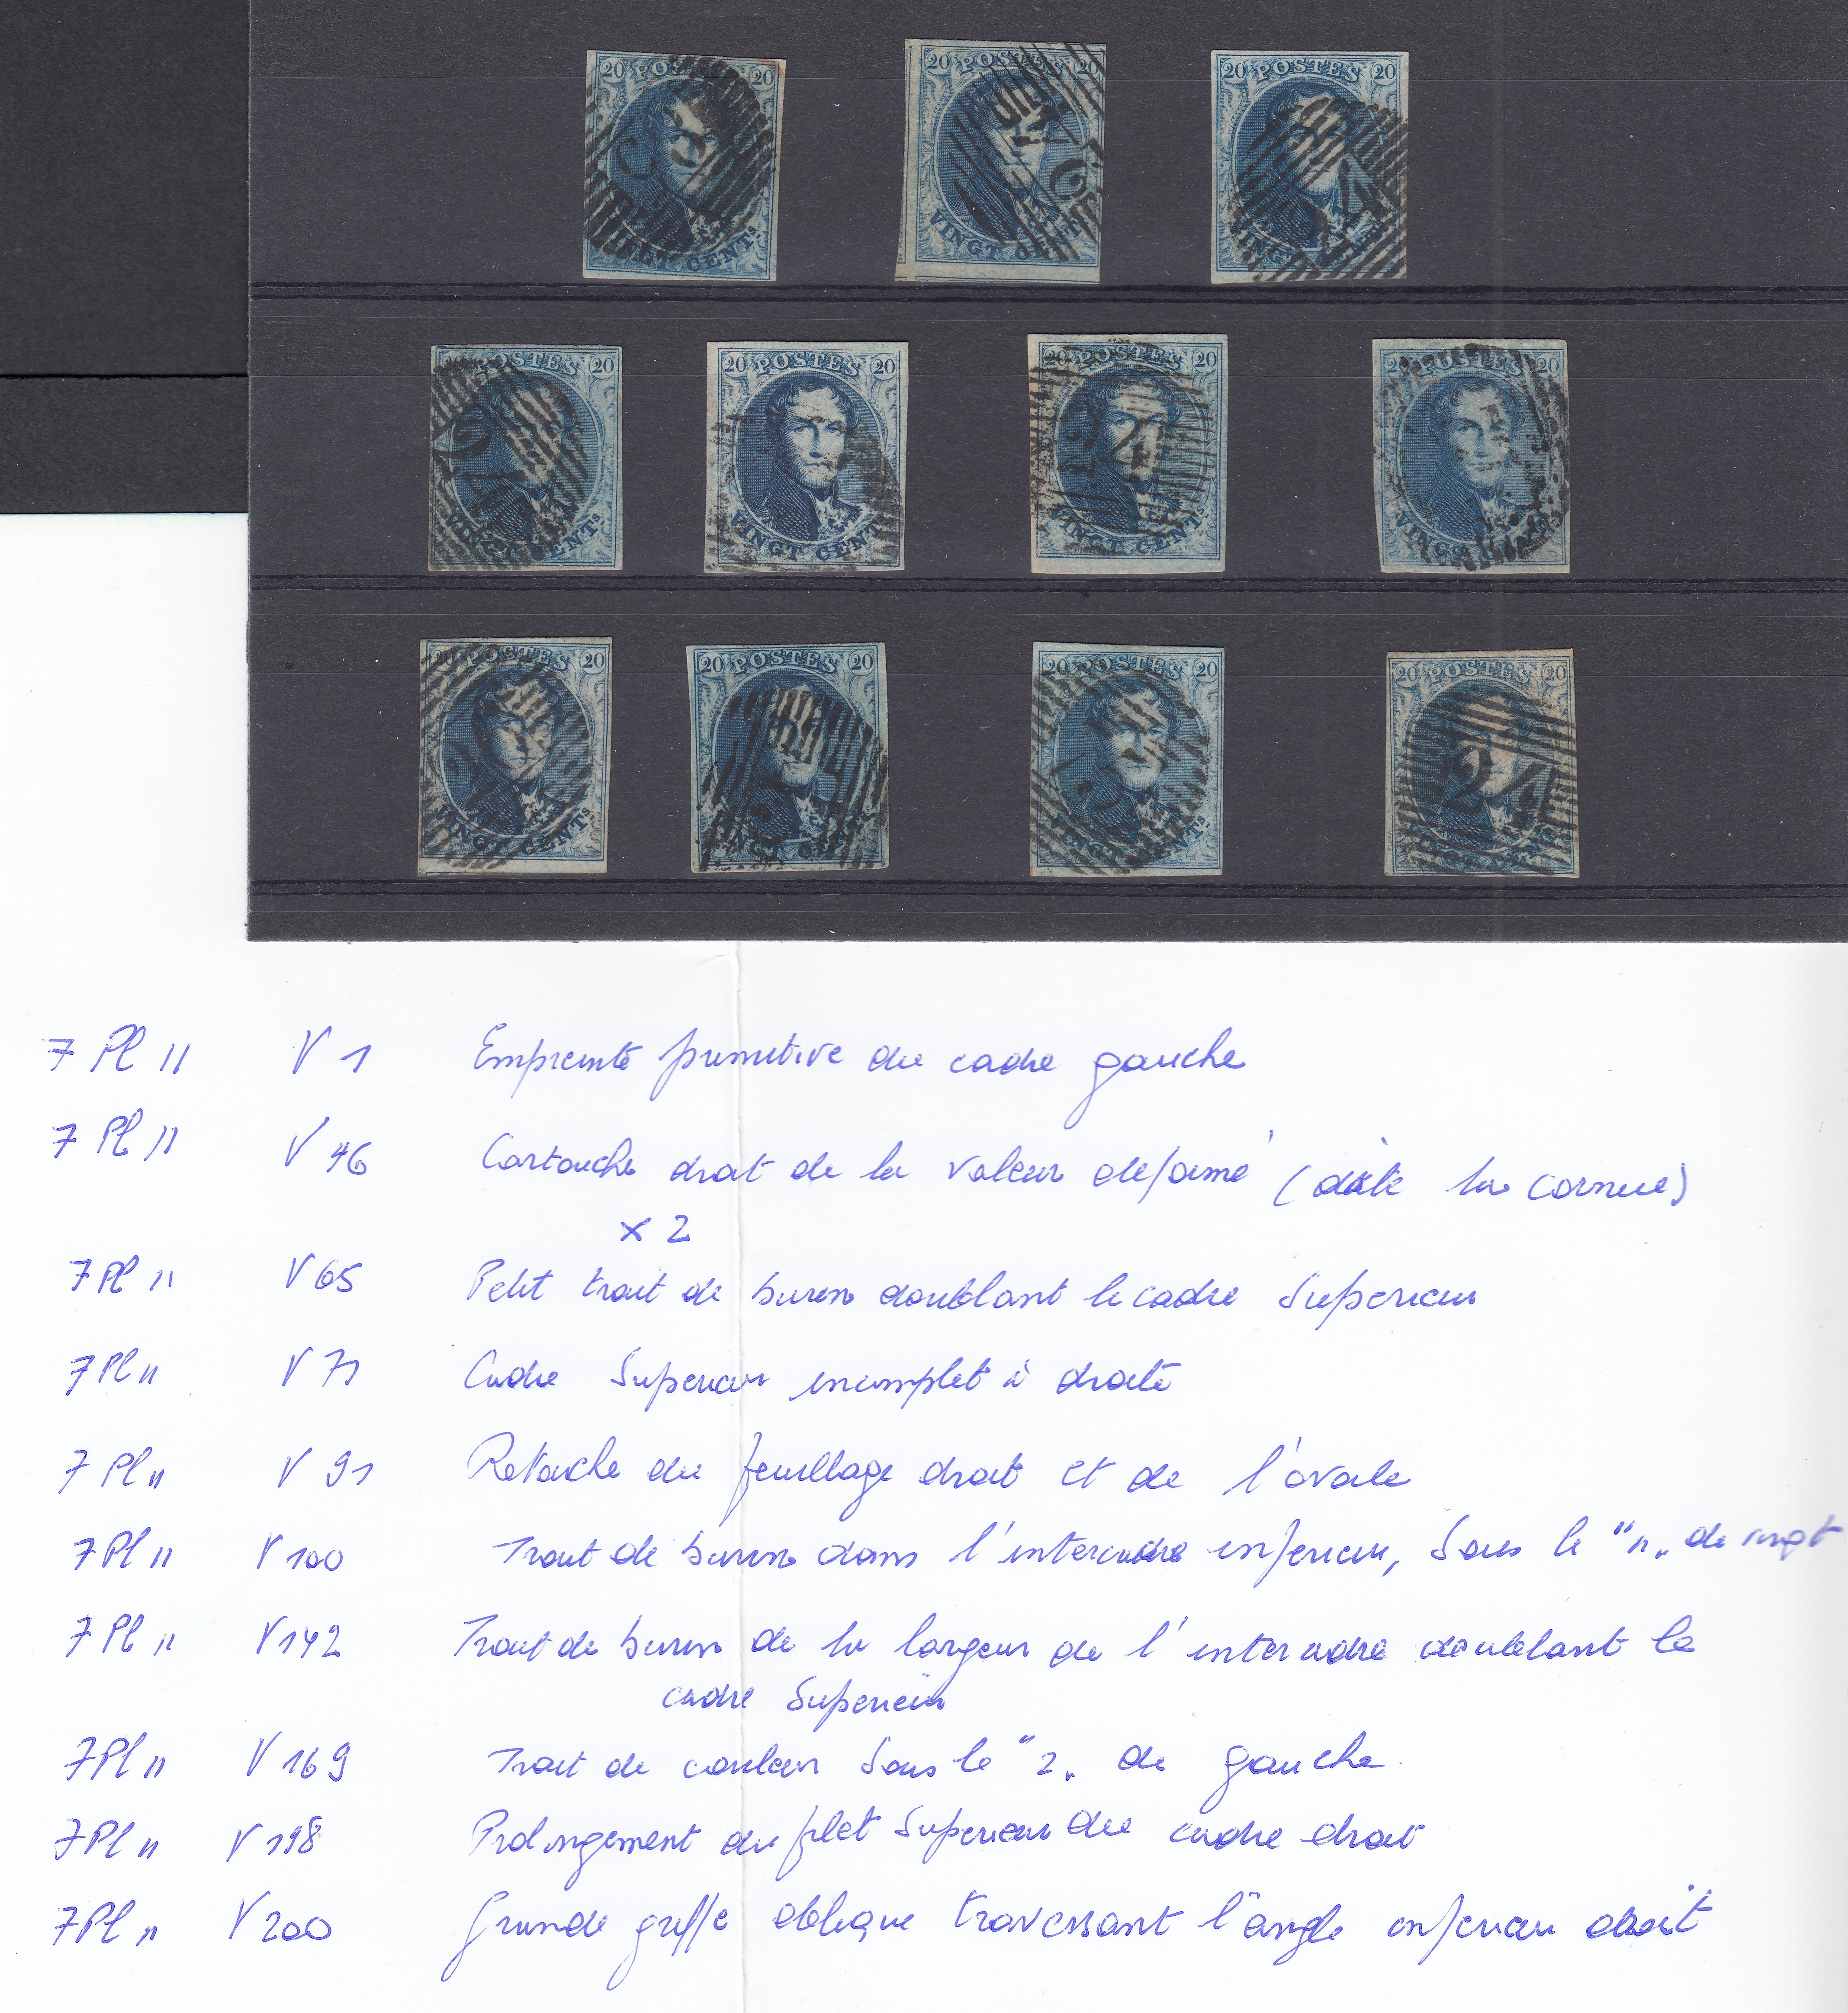 20 POSTES 20
VINGT CENTS
20 POSTES 20
VINGT CENTS
20 POSTES 20
VINGT CENTS
24
20 POSTES 20
VINGT CENTS
20 POSTES 20
VINGT CENTS
20 POSTES 20
24
VINGT CENTS
20 POSTES 20
VINGT CENTS
20 POSTES 20
VINGT CENTS
20 POSTES 20
VINGT CENTS
20 POSTES 20
VINGT CENTS
20 POSTES 20
24
VINGT CENTS
7 Pl II V 1 Empreinte primitive du cadre gauche
7 Pl II V 46 Cartouche droit de la valeur déformé (dite la cornue)
x 2
7 Pl II V 65 Petit trait de burin doublant le cadre Superieur
7 Pl II V 71 Cadre Superieur incomplet à droite
7 Pl II V 91 Retouche du feuillage droit et de l'ovale
7 Pl II V 100 Trait de burin dans l'intercadre inferieur, Sous le "n" de vingt
7 Pl II V 142 Trait de burin de la largeur de l'intercadre doublant le
cadre Superieur
7 Pl II V 169 Trait de couleur Sous le "2" de gauche.
7 Pl II V 198 Prolongement du filet Superieur du cadre droit
7 Pl II V 200 Grande griffe oblique traversant l'angle inferieur droit